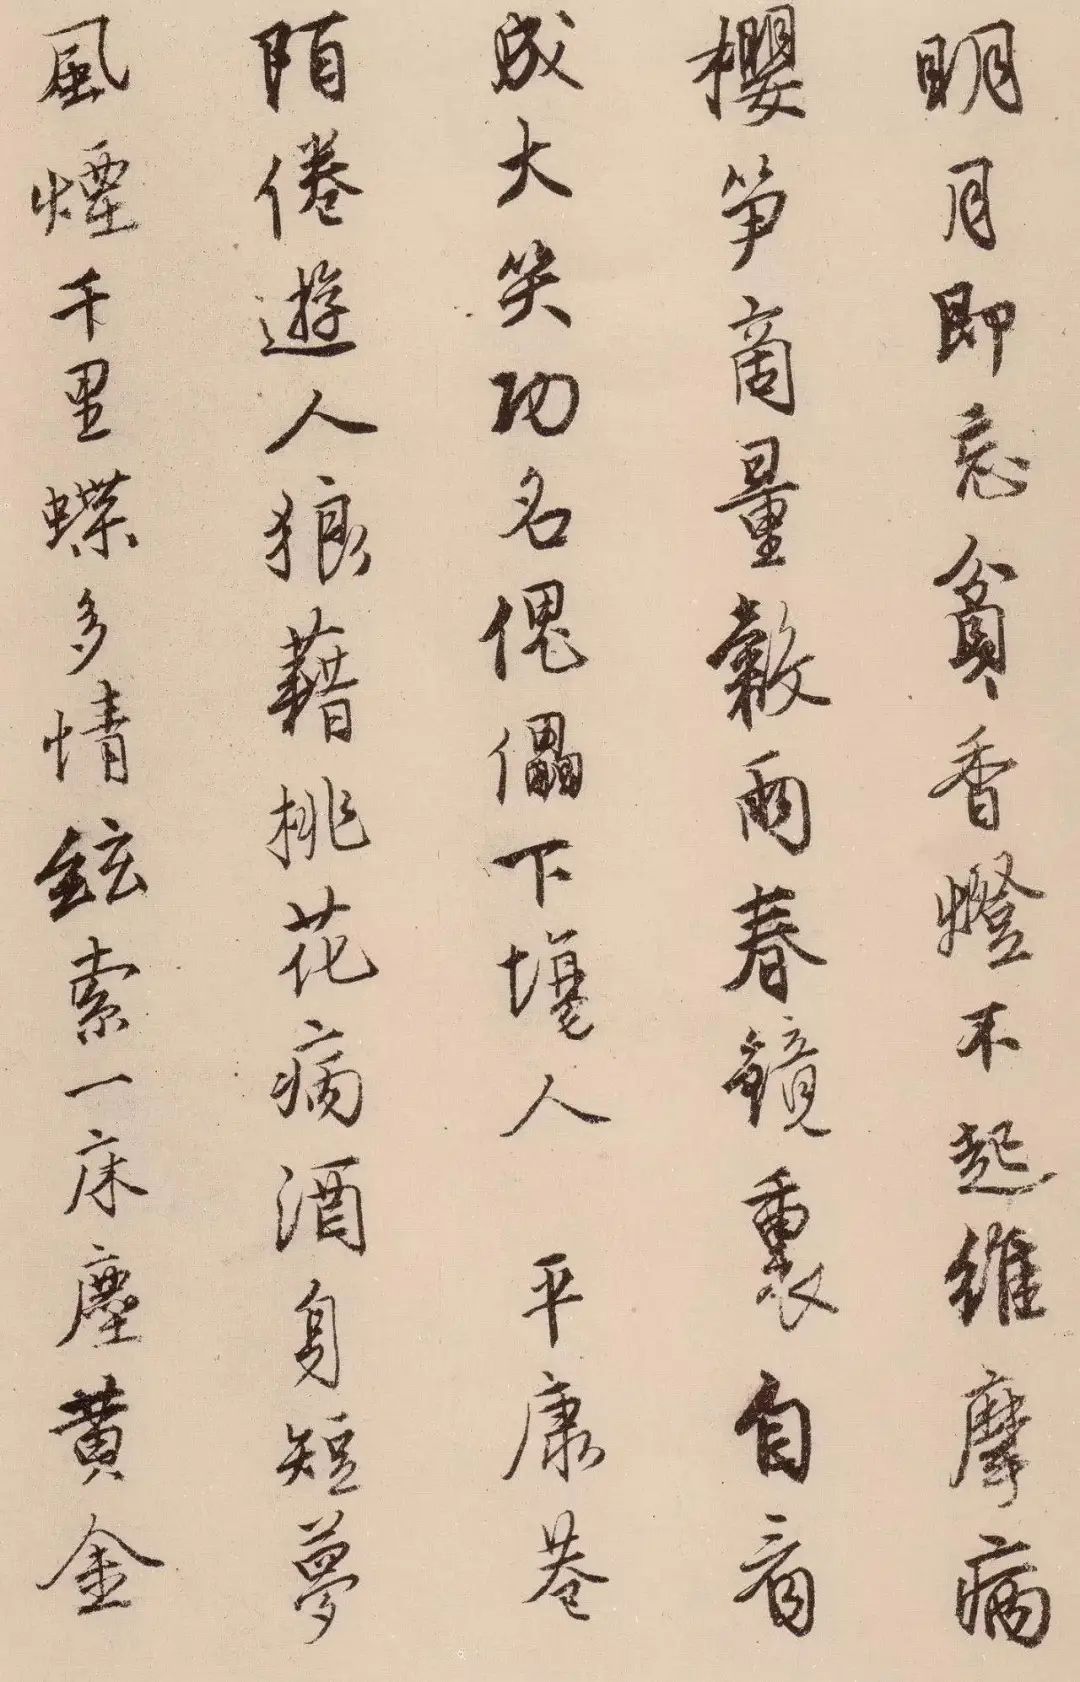 明月即忘貧香燈不起維摩病
櫻筍商量穀雨春鏡裏自看
成大笑功名傀儡下塲人　平康巷
陌倦遊人狼藉桃花病酒身短夢
風煙千里蝶多情絃索一床塵黃金